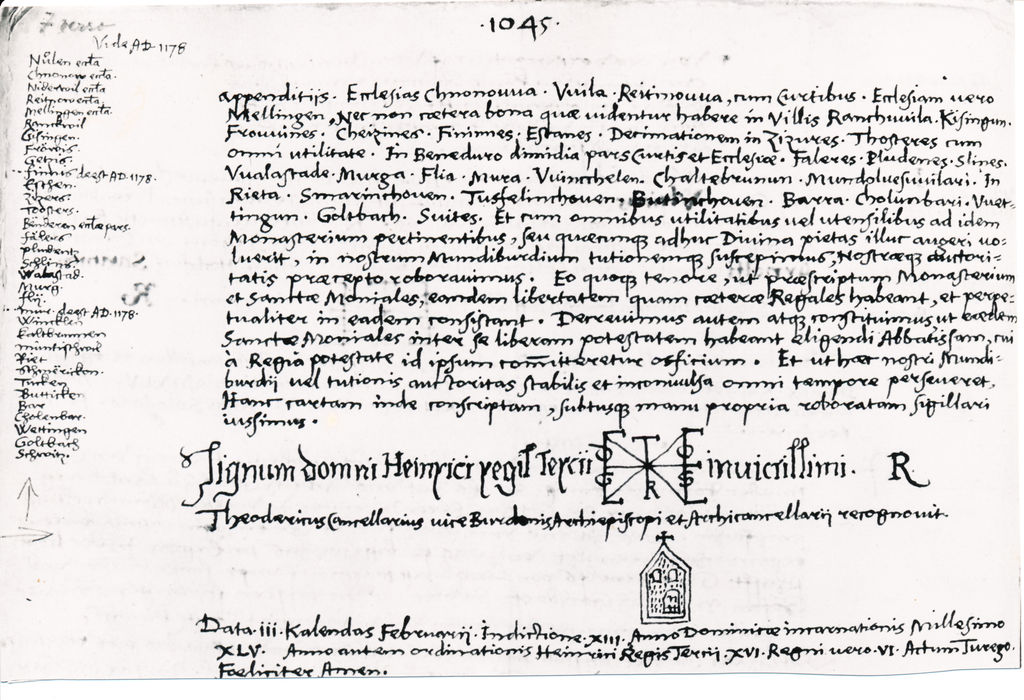 ·1045·
7 verso
Vide AD 1178
Nůlen eccľa
Chnonow eccľa.
Niderwil eccľa
Reitnow eccľa
Mellingen eccľa.
Ranckwil
Gisingen.
Fröwis.
Getzis.
Finnis deest AD. 1178.
Eschen.
Zizers.
Tosters.
Benderen eccľæ pars.
Falers
Pludentz
Schlins.
Walastad.
Murg.
Flij.
mur. deest AD. 1178.
Wincklen
Kaltbrunnen
Riet
Schmericken.
Tucken
Butticken
Bar
Cholenbar.
Wettingen
Goltbach
appenditijs. Ecclesias Chnonouua. Vuila. Reitinouua, cum Curtibus. Ecclesiam uero
Mellingen, Nec non cætera bona quæ uidentur habere in Villis Ranchuuila. Kisingun.
Frouuines. Cheizines. Finnnes. Escanes. Decimationem in Zizures. Thosteres cum
omni utilitate. In Beneduro dimidia pars Curtis et Ecclesiæ. Faleres. Pludenes. Slines.
Vualastade. Murga. Flia. Mura. Vuincchelen. Chaltebrunun. Mundoluesuuilari. In
Rieta. Smarinchouen. Tusselinchouen, Buttinchouen. Barra. Cholunbari. Vuet-
tingun. Goltbach. Suites. Et cum omnibus utilitatibus uel utensilibus ad idem
Monasterium pertinentibus, seu quæcunque adhuc Diuina pietas illuc augeri uo-
luerit, in nostrum Mundiburdium tutionemque suscepimus, Nostræque auctori-
tatis præcepto roborauimus. Eo quoque tenore, ut præscriptum Monasterium
et Sanctæ Moniales, eandem libertatem quam cæteræ Regales habeant, et perpe-
tualiter in eadem consistant. Decreuimus autem atque constituimus, ut eædem
Sanctæ Moniales inter se liberam potestatem habeant eligendi Abbatissam, cui
à Regia potestate id ipsum comitteretur officium. Et ut hæc nostri Mundi-
burdij uel tutionis auctoritas stabilis et inconuulsa omni tempore perseueret,
Hanc cartam inde conscriptam, subtusque manu propria roboratam sigillari
iussimus.
Signum domni Heinrici regis Tercii inuictissimi. R
Theodericus Cancellarius uice Bardonis Archiepiscopi et Archicancellarij recognouit.
Data. iii. Kalendas Februarij. Indictione. XIII. Anno Dominicæ incarnationis Millesimo
XLV. Anno autem ordinationis Heinrici Regis Tercij. XVI. Regni uero. VI. Actum Turego.
Fœliciter Amen.